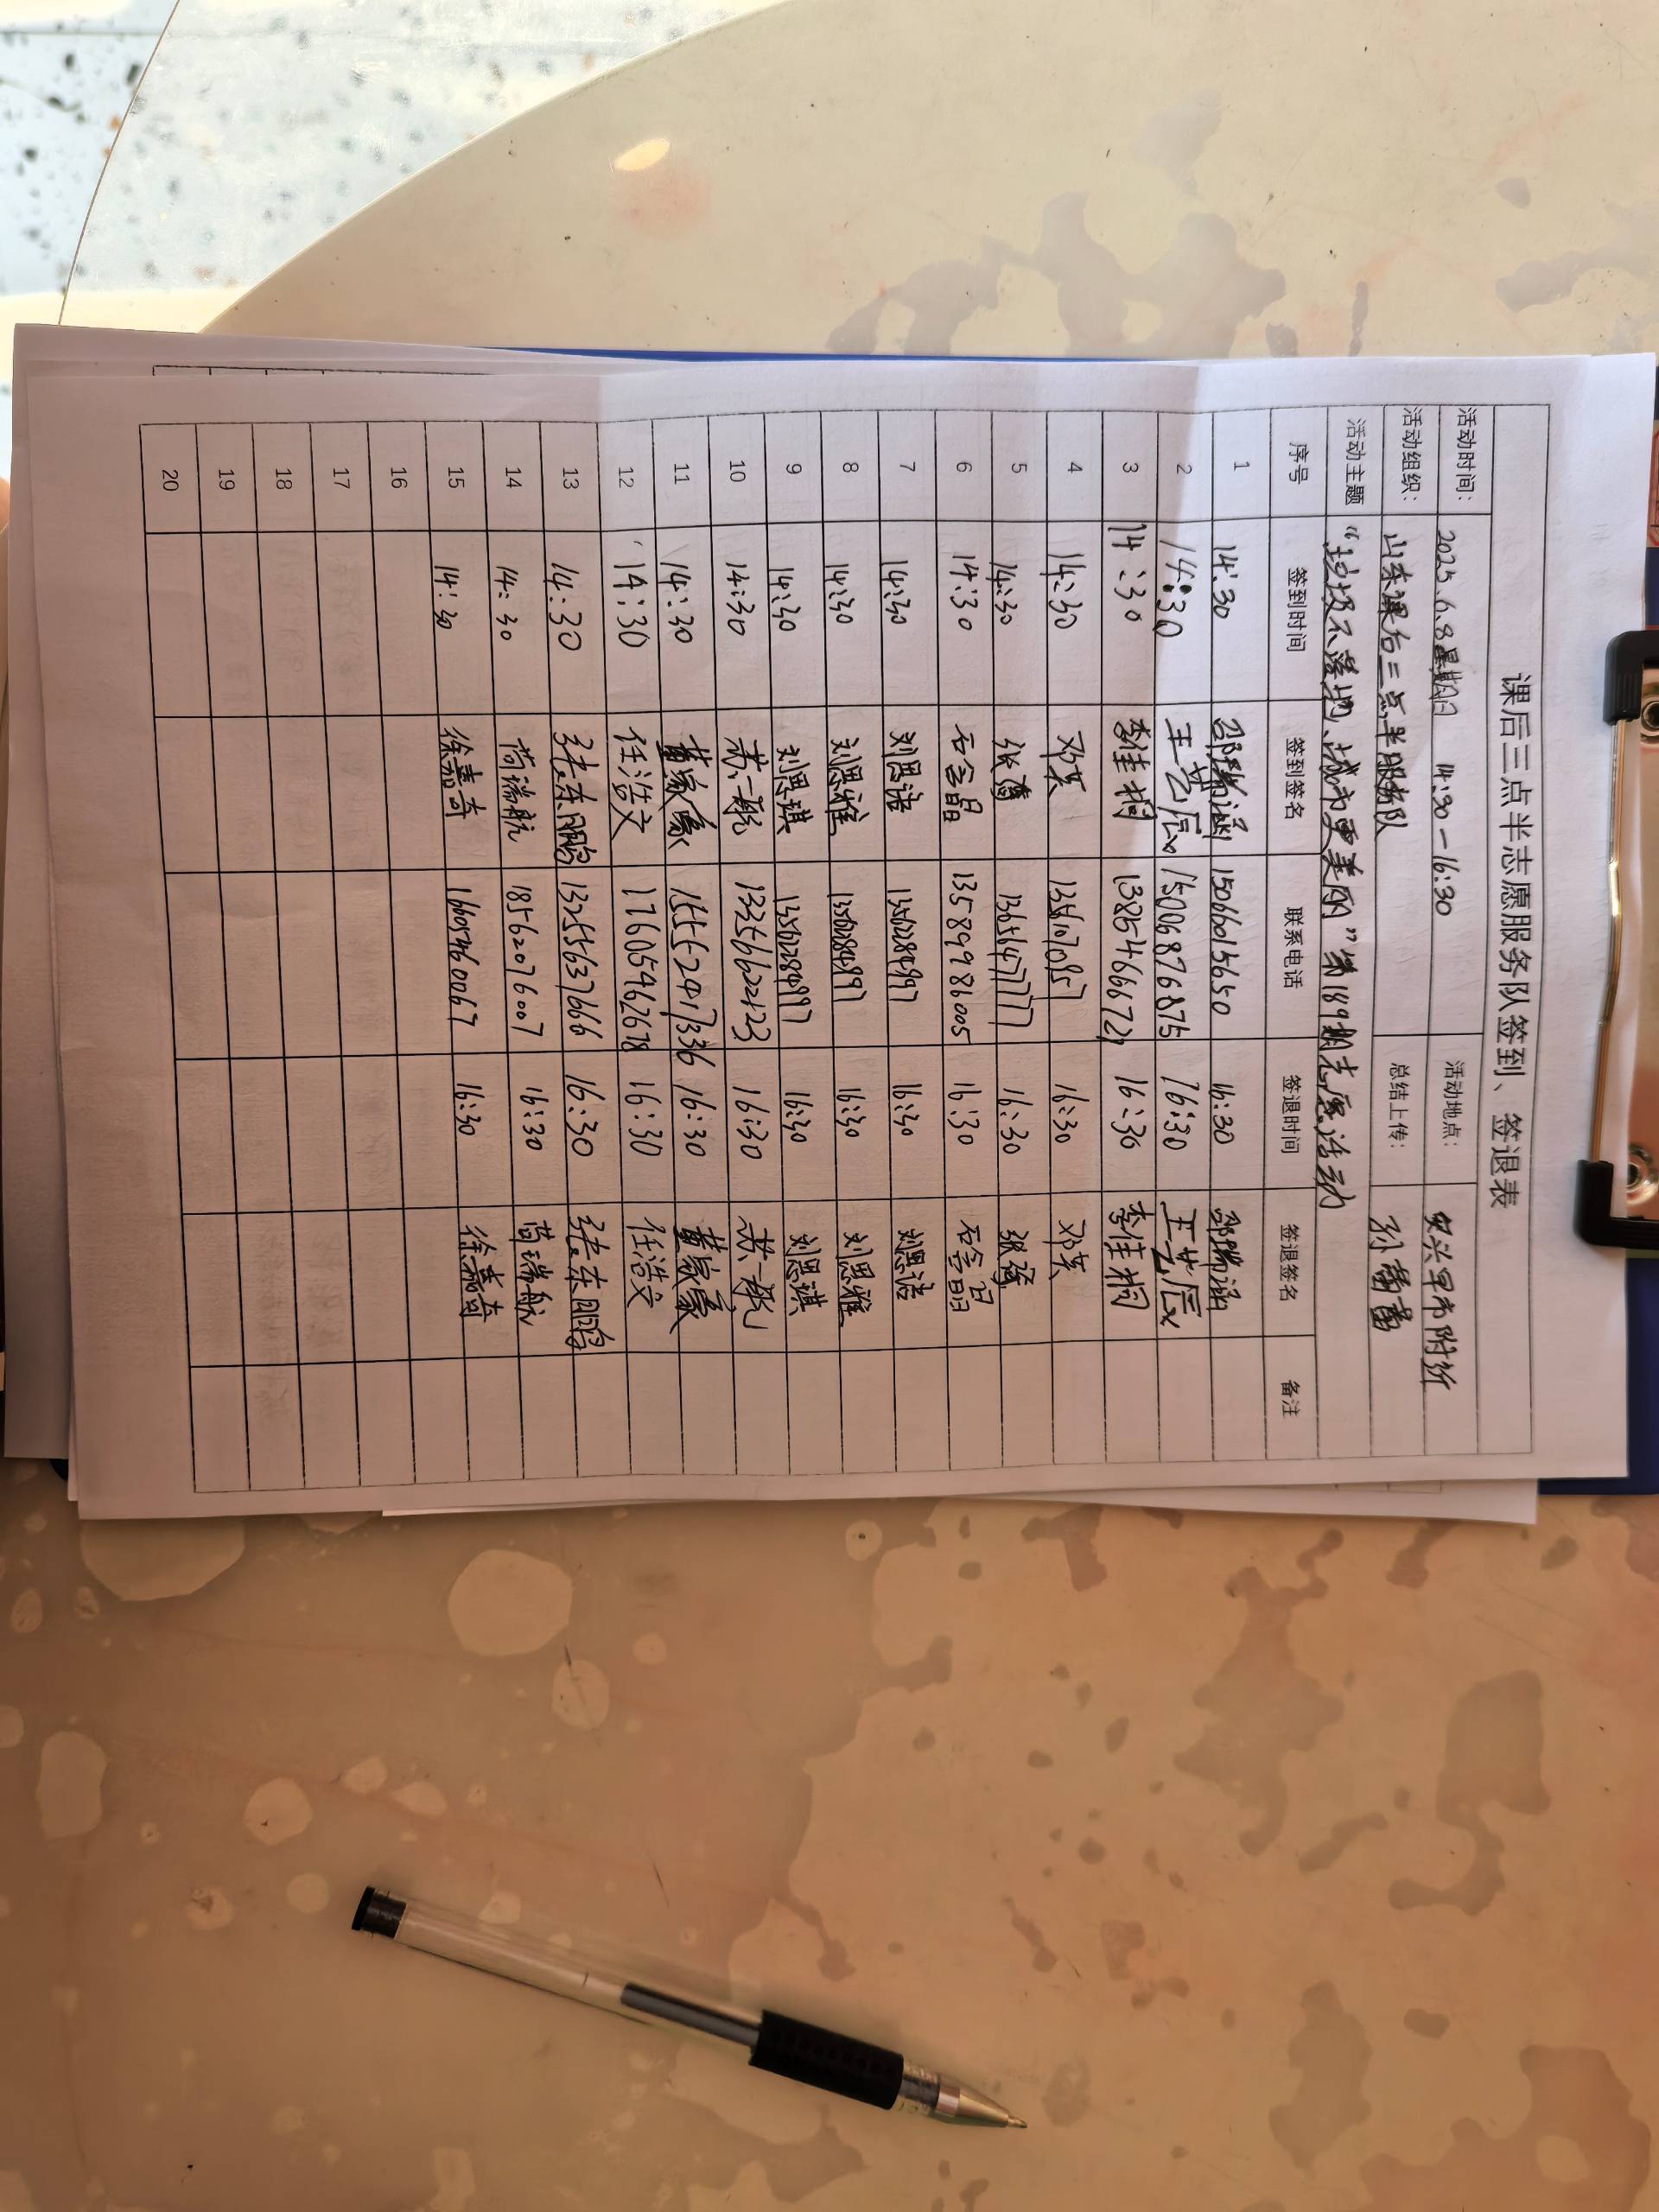 课后三点半志愿服务队签到、签退表
活动时间: 2025.6.8星期日 14:30-16:30 活动地点: 安兴早市附近
活动组织: 山东课后三点半服务队 总结上传: 孙蕾蕾
活动主题 “垃圾不落地、城市更美丽”第189期志愿活动
序号 签到时间 签到签名 联系电话 签退时间 签退签名 备注
1 14:30 邵瑞涵 15066015650 16:30 邵瑞涵
2 14:30 王艺辰 15006876875 16:30 王艺辰
3 14:30 李佳桐 16:30 李佳桐
4 14:30 邓英 16:30 邓英
5 14:30 13656477777 16:30
6 14:30 石含晶 13589998005 16:30 石含晶
7 14:30 刘思诺 16:30 刘思诺
8 14:30 刘思雅 16:30 刘思雅
9 14:30 刘思琪 16:30 刘思琪
10 14:30 苏一航 13356622123 16:30 苏一航
11 14:30 黄家豪 15552417336 16:30 黄家豪
12 14:30 任浩文 17605462678 16:30 任浩文
13 14:30 张东鹏 13255637666 16:30 张东鹏
14 14:30 苟瑞航 18562076007 16:30 苟瑞航
15 14:30 徐嘉奇 16605460067 16:30 徐嘉奇
16
17
18
19
20